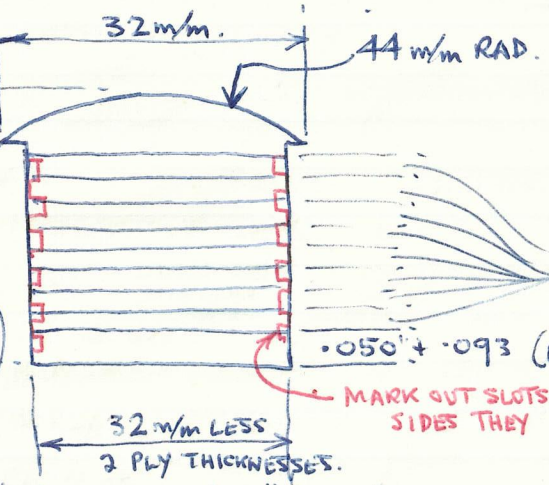 32 m/m.
44 m/m RAD.
.050 + .093
MARK OUT SLOTS
SIDES THEY
32 m/m LESS
2 PLY THICKNESSES.